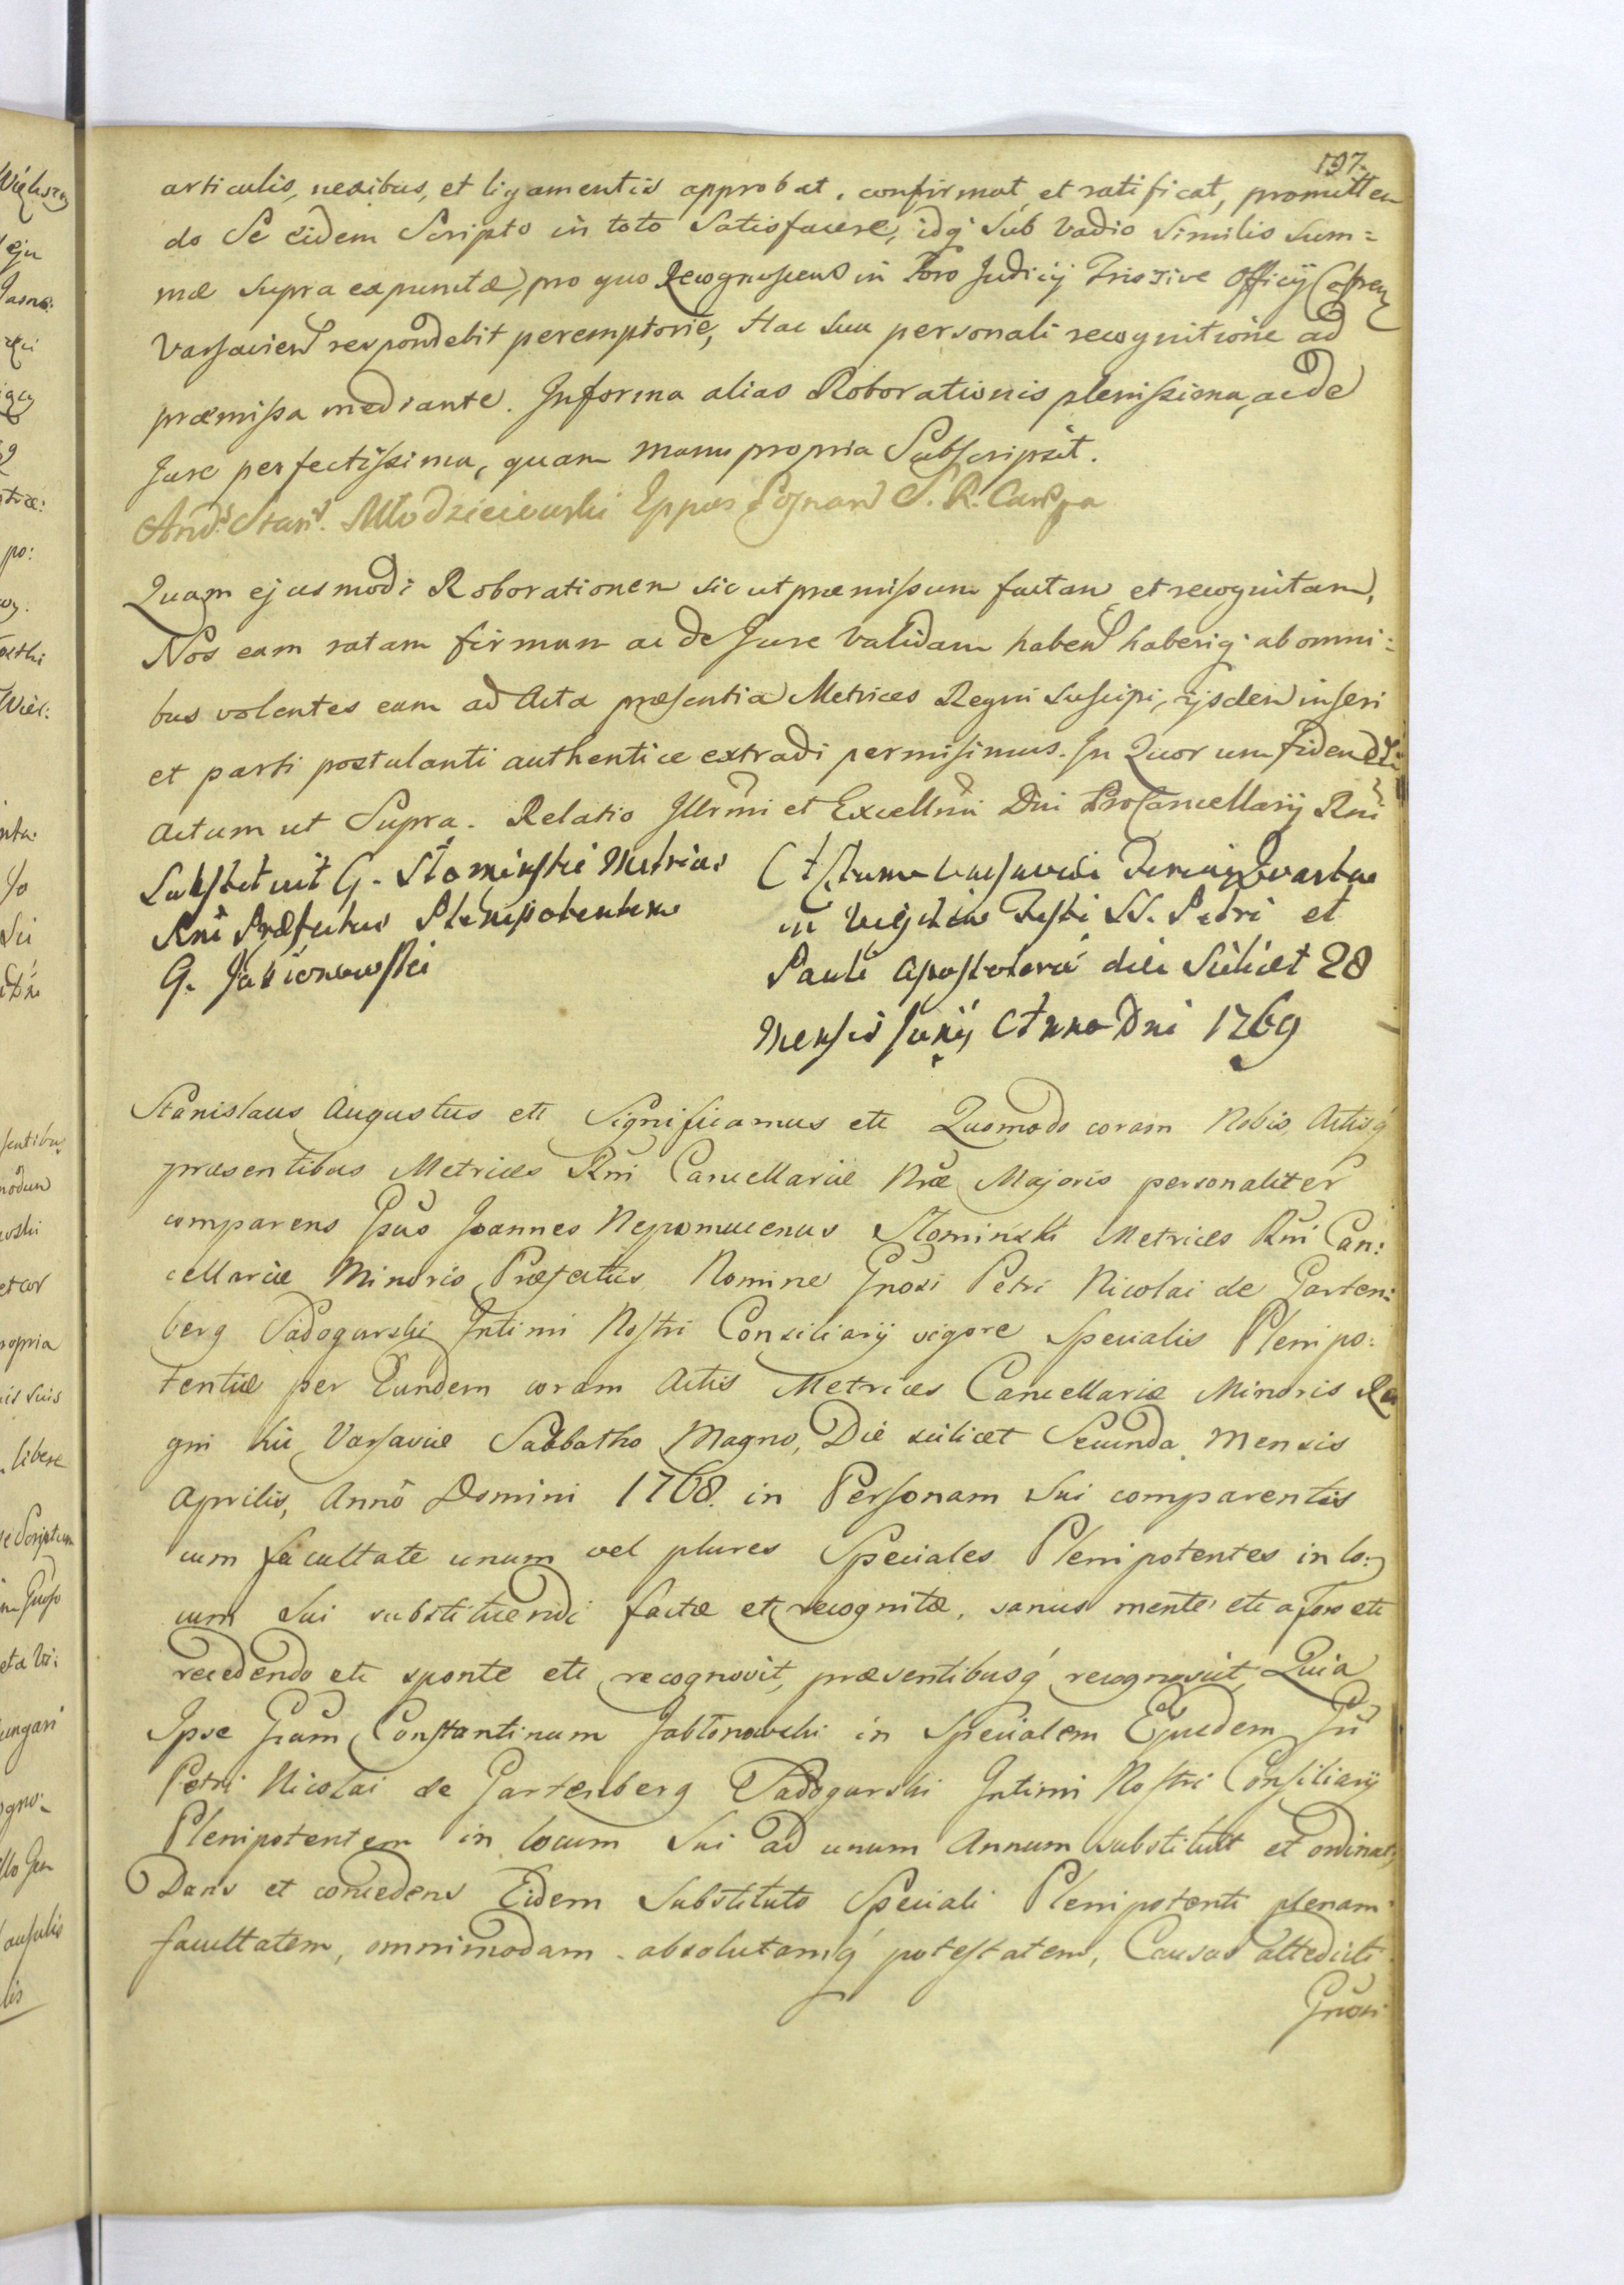 197.
articulis, nexibus, et ligamentis approbat, confirmat, et ratificat, promitten
do Se eidem Scripto in toto Satisfacere, idq́ sub vadio similis sum=
mæ supra expunctæ, pro quo Recognoscens in Foro Judicij sive Officij Castren
Varsavien respondebit peremptorie, Hac sua personali recognitione ad
præmissa mediante. In forma alias Roborationis plenissima, ac de
Jure perfectissima, quam manu propria Subscripsit.
Andr. Stan. Młodzieiewski Eppus Posnan S. R. Canc
Quam ejusmodi Roborationem sic ut præmissum factam, et recognitam,
Nos eam ratam firmam ac de Jure validam haben haberiq́ ab omni=
bus volentes eam ad Acta præsentia Metrices Regni suscipi, ijsdem inseri
et parti postulanti authentice extradi permisimus. In Quorum Fidem
Actum ut Supra. Relatio Illrmi et Excellmi Dni ProCancellarij Rni
Substituit G. Słominski Metrices
Rni Præfectus Plenipotentem
G. Jabłonowski
Actum Varsaviæ Feria Quarta
in Vigilia Festi SS. Petri et
Pauli Apostolorū die scilicet 28
Mensis Junij Anno Dni 1769
Stanislaus Augustus etc Significamus etc Quomodo coram Nobis, Actisq́
præsentibus Metrices Rni Cancellariæ Nræ Majoris personaliter
comparens Gsus Joannes Nepomucenus Słominski Metrices Rni Can:
cellariæ Minoris Præfectus, Nomine Gnosi Petri Nicolai de Garten:
berg Sadogurski Intimi Nostri Consiliarij vigore Specialis Plenipo:
tentiæ per Eundem coram Actis Metrices Cancellariæ Minoris Re
gni hic Varsaviæ Sabbatho Magno, Die scilicet Secunda Mensis
Aprilis, Annō Domini 1768. in Personam sui comparentis
cum facultate unum vel plures Speciales Plenipotentes in lo:
cum sui substituendi factæ et recognitæ, sanus mente etc a Foro etc
recedendo etc sponte etc recognovit, præsentibusq́ recognoscit, Quia
Ipse Gsum Constantinum Jabłonowski in Specialem Ejusdem Gsi
Petri Nicolai de Gartenberg Sadogurski Intimi Nostri Consiliarij
Plenipotentem in locum sui ad unum Annum substituit et ordinat,
Dans et concedens Eidem Substituto Speciali Plenipotenti plenam
facultatem, omnimodam absolutamq́ potestatem, Causas attedicti
Gnosi